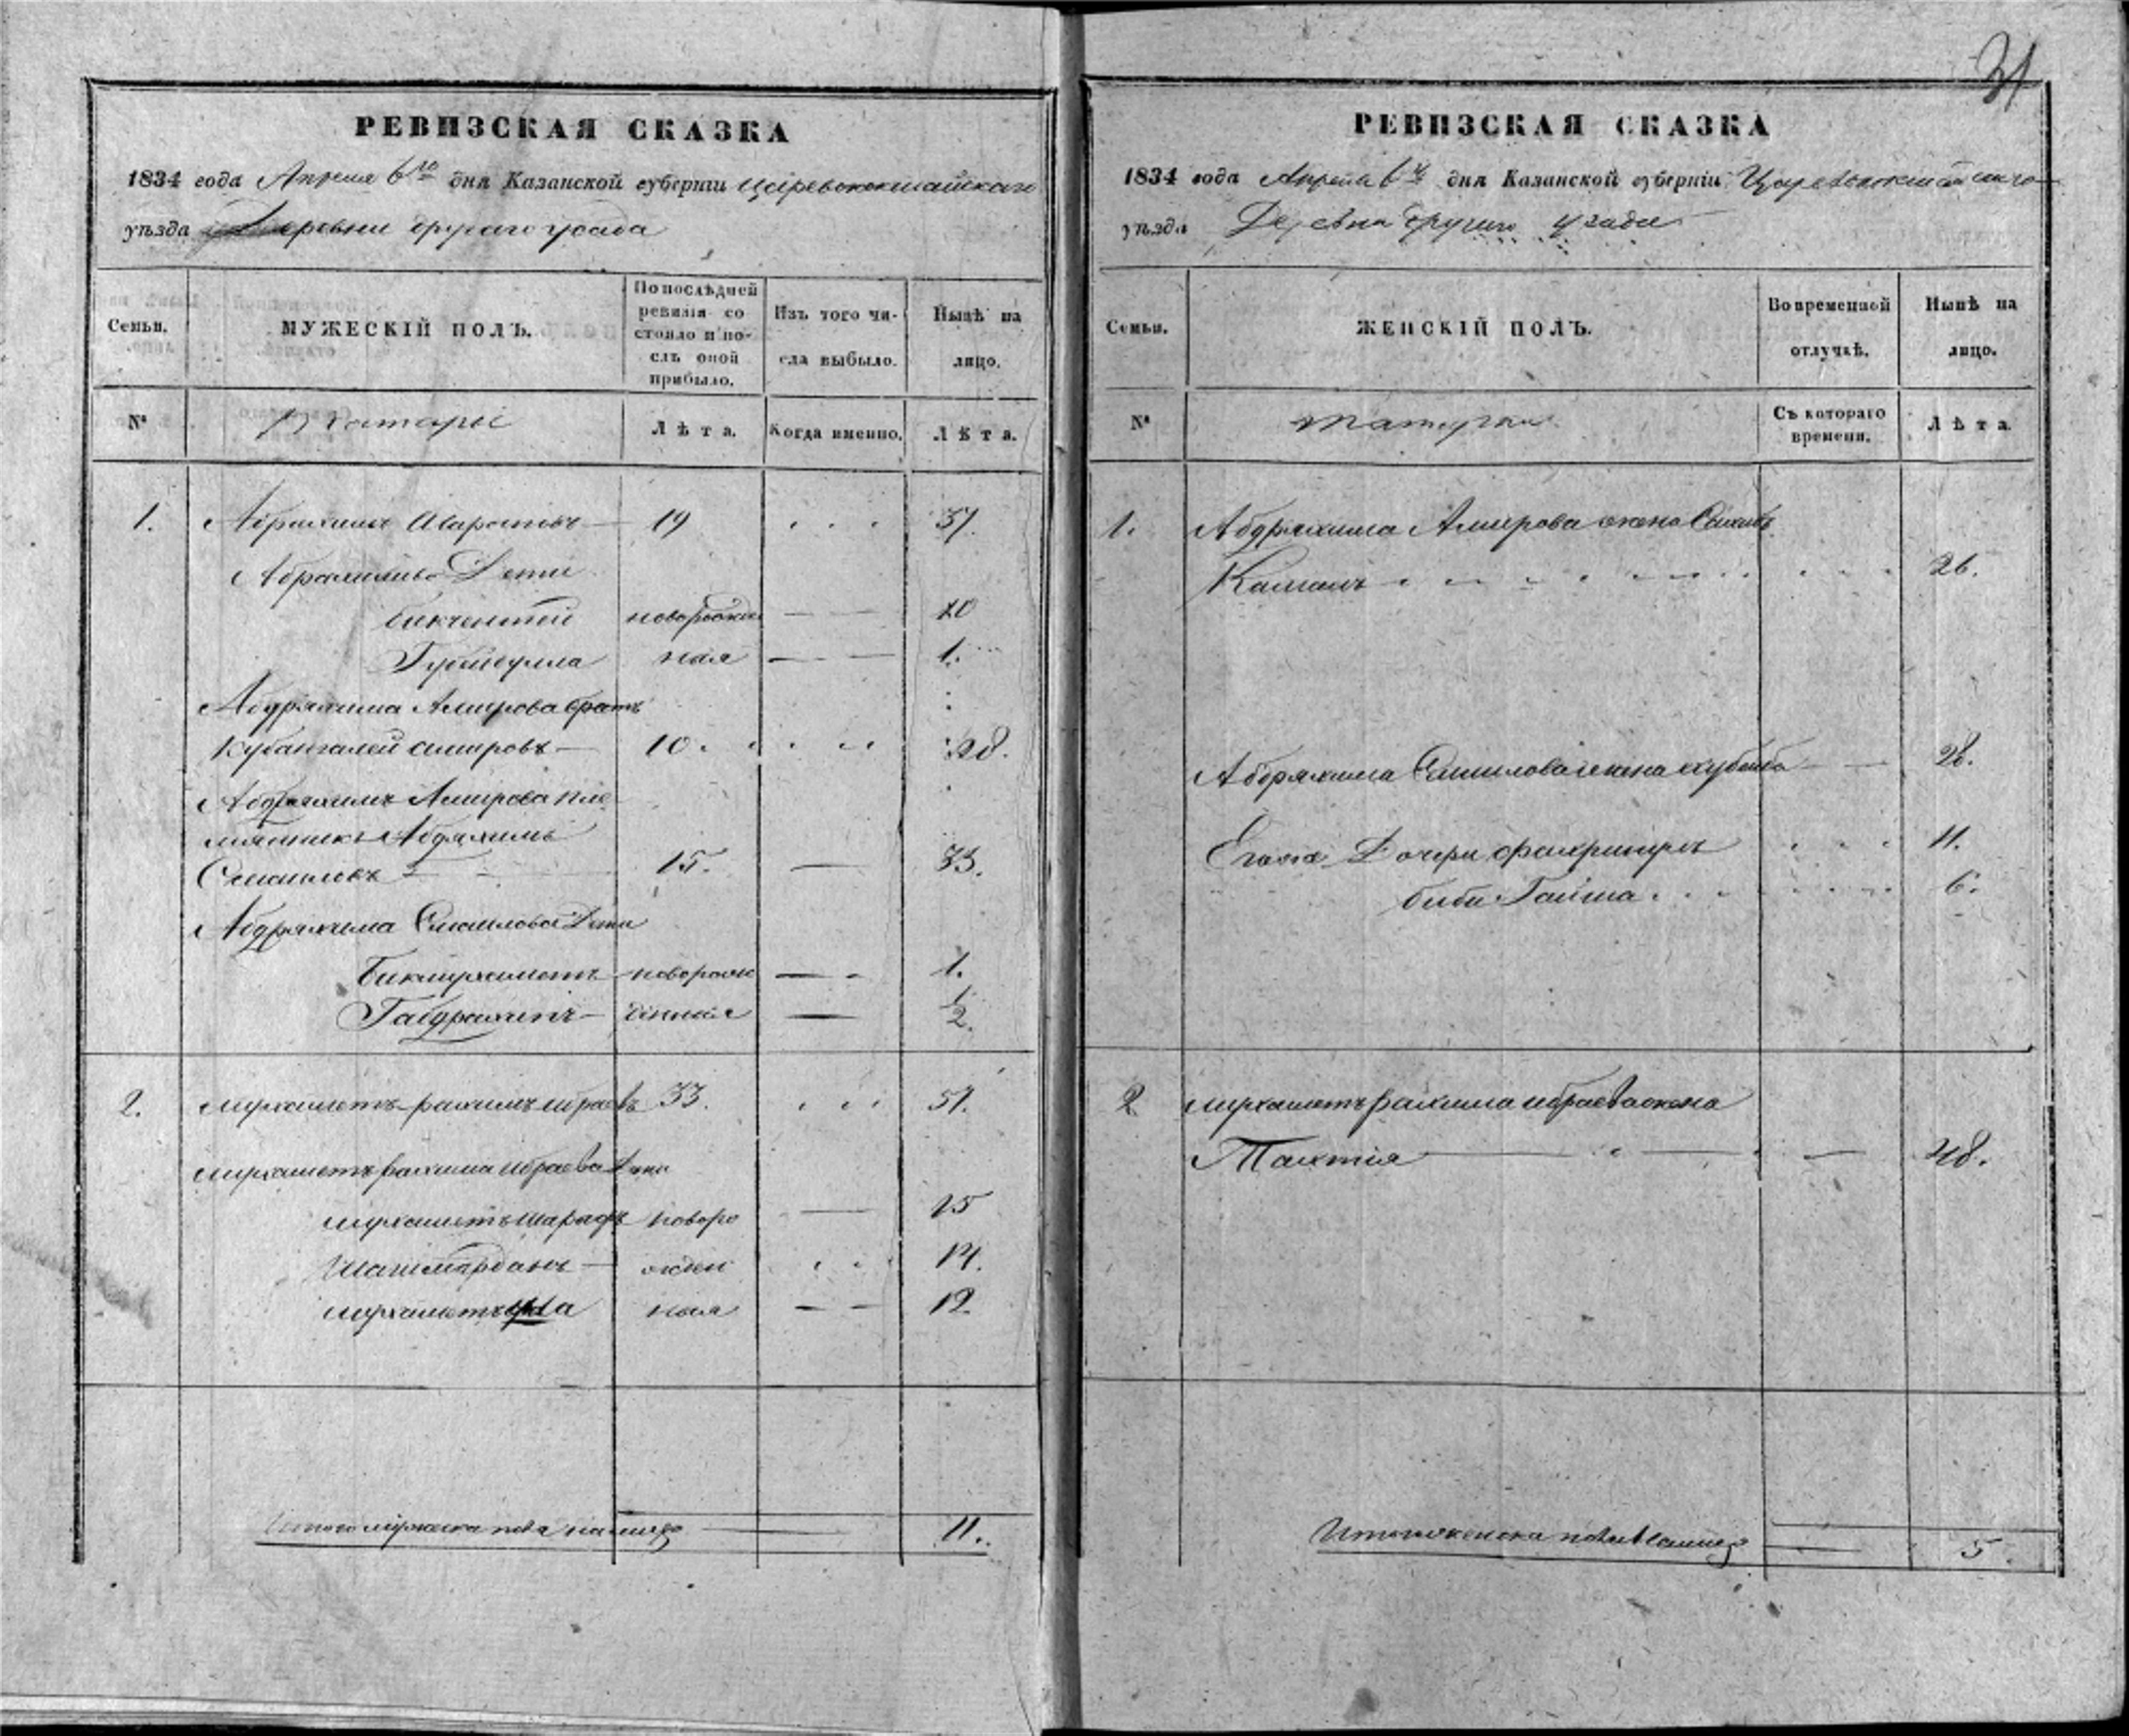 31
РЕВИЗСКАЯ СКАЗКА
1834 года Апреля 6го дня Казанской губерніи Царевококшайскаго
уѣзда Деревни другаго усада
Семьи.
МУЖЕСКІЙ ПОЛЪ.
По послѣдней ревизіи состояло и послѣ оной прибыло.
Изъ того числа выбыло.
Нынѣ на лицо.
№
татары
Лѣта.
Когда именно.
Лѣта.
1. 19 37.
Дети
новорожде 10
ная 1.
Абдряхима Амирова братъ
Кубангалей Амировъ 10 28.
Абдряхимъ Амирова пле
мянникъ Абдряхимъ
Смаиловъ 15. 33.
Абдряхима Смаилова Дети
Бикмухаметъ новорож 1.
Габдрахимъ денная 1/2.
2. мухаметъ рахимъ ибраевъ 33. 51.
мухаметъ рахима ибраева Дети
мухаметъ шарафъ новоро 15
Шагимарданъ жден 14.
ная 12.
Итого мужеска пола налицо 11.
РЕВИЗСКАЯ СКАЗКА
1834 года Апреля 6го дня Казанской губерніи Царевококшайскаго
уѣзда Деревна другаго усада
Семьи.
ЖЕНСКІЙ ПОЛЪ.
Во временной отлучкѣ.
Нынѣ на лицо.
№
татарки
Съ котораго времени.
Лѣта.
1. Абдряхима Амирова жена
26.
Абдряхима Смаилова жена хубиба 28.
Егожа Дочери 11.
биби Гайша 6.
2. мухаметъ рахима ибраева жена
48.
Итого женска пола налицо 5.